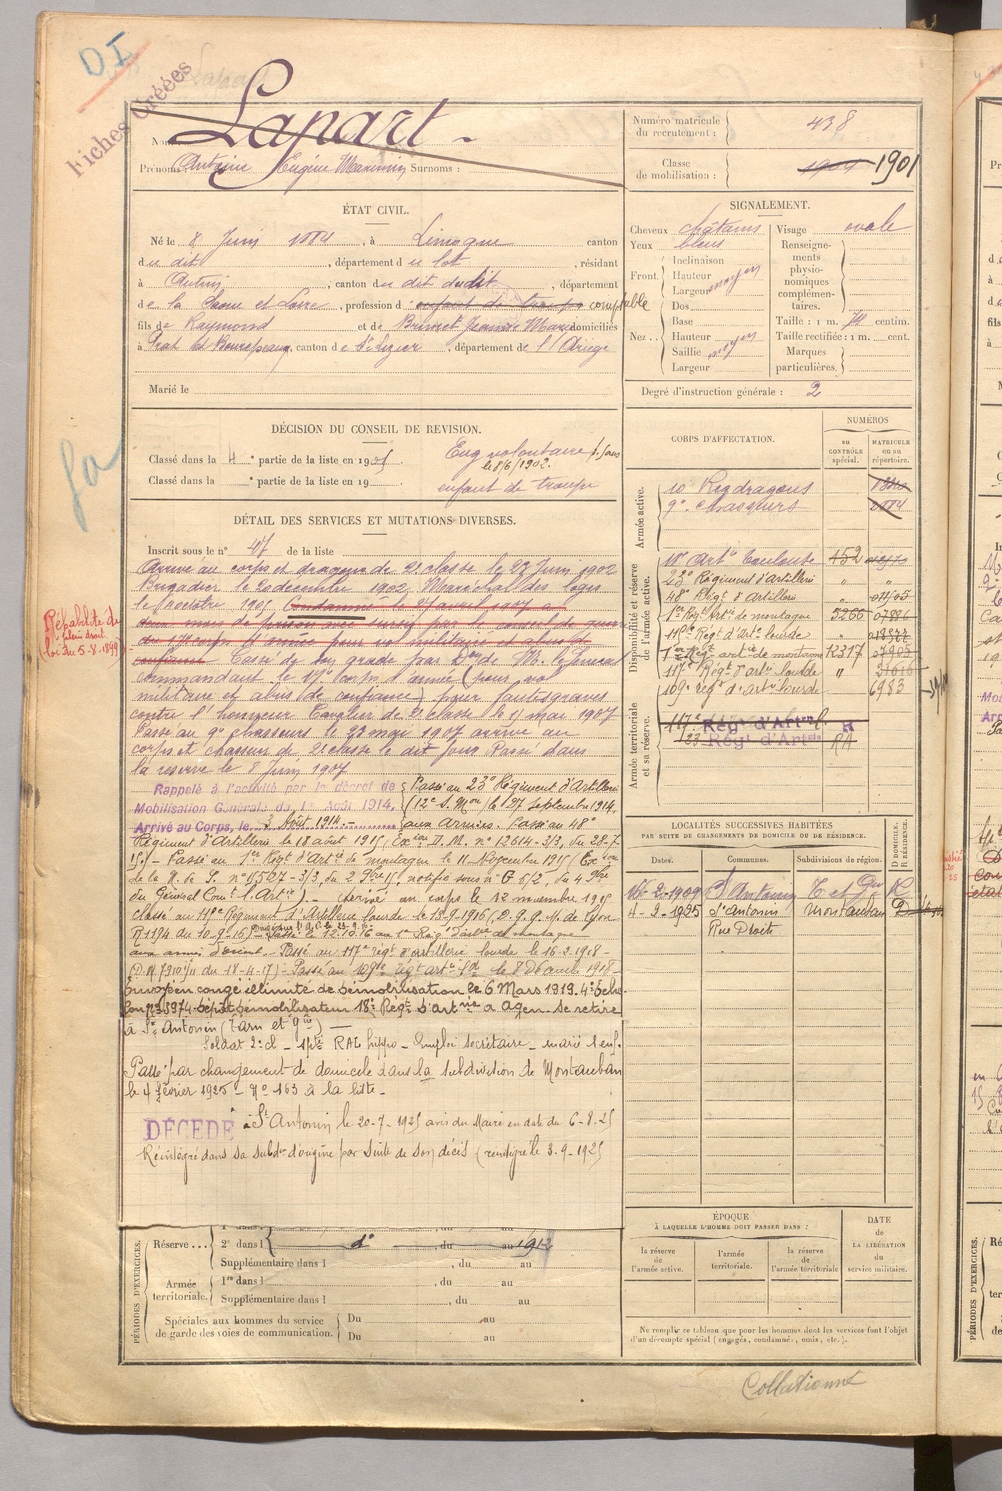 DI
Fiches Créées
Lapart
Nom
Prénoms : Antoine Eugène Maximin Surnoms :
Numéro matricule du recrutement : 438
Classe de mobilisation : 1904 1901
ÉTAT CIVIL.
Né le 8 Juin 1884, à Limogne canton
du dit, département du Lot, résidant
à Autun, canton du dit dudit, département
de la Saône et Loire, profession d'enfant de troupe comptable
fils de Raymond et de Brunet Jeanne Marie domiciliés
à Prat et Bonrepaux, canton de St Lizier, département de l'Ariège
Marié le
SIGNALEMENT.
Cheveux châtains
Yeux bleus
Front
Inclinaison
Hauteur
Largeur moyen
Nez
Dos
Base
Hauteur
Saillie moyen
Largeur
Visage ovale
Renseignements physionomiques complémentaires.
Taille : 1 m. 74 centim.
Taille rectifiée : 1 m. cent.
Marques particulières.
Degré d'instruction générale : 2
DÉCISION DU CONSEIL DE REVISION.
Classé dans la 4e partie de la liste en 1905.
Classé dans la e partie de la liste en 19
Eng volontaire p. 5 ans
le 8/6/1902.
enfant de troupe
DÉTAIL DES SERVICES ET MUTATIONS DIVERSES.
Inscrit sous le n° 45 de la liste
Arrivé au corps et dragon de 2e classe le 23 Juin 1902
Brigadier le 20 décembre 1902, Maréchal des logis
le 1er octobre 1905. Condamné le 25 avril 1907 à
deux mois de prison avec sursis par le conseil de guerre
du 17e corps d'armée pour vol militaire et abus de
confiance Cassé de son grade par de M. le Général
commandant le 17e corps d'armée (pour vol
militaire et abus de confiance) pour fautes graves
contre l'honneur Cavalier de 2e classe le 15 mai 1907
Passé au 9e chasseurs le 22 mai 1907 arrivé au
corps et chasseur de 2e classe le dit jour Passé dans
la réserve le 8 Juin 1907
Réhabilité de plein droit loi du 5-8-1899
Rappelé à l'activité par le décret de
Mobilisation Générale du 1er Août 1914.
Arrivé au Corps, le 3 Août 1914.
Passé au 23e Régiment d'Artillerie
(12e S. Mon) le 27 septembre 1914.
aux Armées. Passé au 48e
Régiment d'Artillerie le 18 août 1915, D. M. n° 12614-3/3, du 28-7-
15. - Passé au 1er Régt d'Artie de montagne le 11 Novembre 1915
du Général Comt l'Artie). - arrivé au corps le 12 novembre 1915
classé au 117e Régiment d'Artillerie lourde le 18-9-1916
aux armées d'orient. Passé au 117e régt d'artillerie lourde le 16-2-1918-
(D.M. 7310/11 du 18-4-17) - Passé au 109e régt artie lde le 8 d'avril 1918-
Envoyé en congé illimité de démobilisation le 6 Mars 1919. 4e Echon
Dépôt démobilisateur 18e Régt d'Artrie à Agen. Se retire
à St Antonin (Tarn et Gne)
Soldat 2e cl - RAL hippo - Emploi secrétaire - marié 1 enf.
Passé par changement de domicile dans la subdivision de Montauban
le 4 février 1925 - N° 163 à la liste -
DÉCÉDÉ à St Antonin le 20-7-1925 avis du Maire en date du 6-8-25
Réintégré dans sa subdon d'origine par suite de son décès (renseigné le 3-9-1925
CORPS D'AFFECTATION.
NUMÉROS
AU CONTRÔLE spécial.
MATRICULE ou au répertoire.
Armée active.
10e Reg dragons
9e chasseurs
Disponibilité et réserve de l'armée active.
18e Artie Toulouse 452
23e Régiment d'Artillerie " "
48e Régt d'Artillerie "
1er Regt Art de montagne 5266
117e Régt d'Arte lourde "
1er Régt artie de montagne 12317
117e Régt d'artie lourde "
109e régt d'artie lourde 6983
Armée territoriale et sa réserve.
117e Régt d'Artrie
133 Régt d'Artrie RA
LOCALITÉS SUCCESSIVES HABITÉES
PAR SUITE DE CHANGEMENTS DE DOMICILE OU DE RÉSIDENCE.
Dates.
Communes.
Subdivisions de région.
D DOMICILE. R RÉSIDENCE.
16-2-1909 St Antonin T et Gne R
4-2-1925 St Antonin Montauban D
Rue Droite
ÉPOQUE
À LAQUELLE L'HOMME DOIT PASSER DANS :
la réserve de l'armée active.
l'armée territoriale.
la réserve de l'armée territoriale
DATE DE LA LIBÉRATION du service militaire.
Ne remplir ce tableau que pour les hommes dont les services font l'objet
d'un décompte spécial (engagés, condamné, omis, etc.).
PÉRIODES D'EXERCICES.
Réserve
2e dans l d° du au 1912
Supplémentaire dans l, du au
Armée territoriale.
1re dans l, du au
Supplémentaire dans l, du au
Spéciales aux hommes du service de garde des voies de communication.
Du au
Du au
Collationné